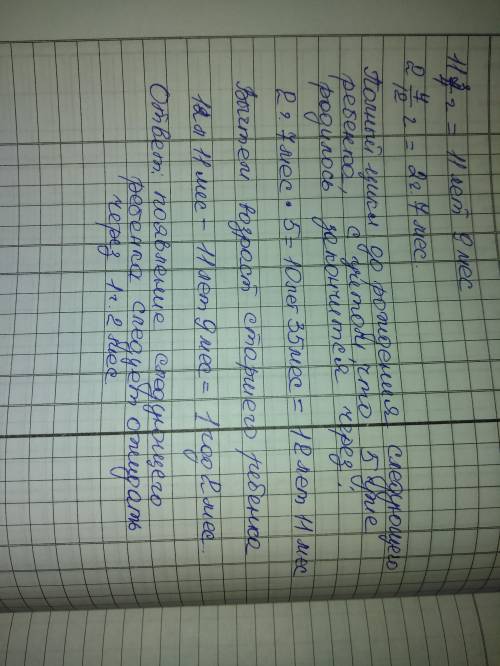 11 3/4 г = 11 лет 9 мес
2 7/12 г = 2г 7 мес.
Полный цикл до рождения следующего
ребенка, с учетом, что 5 уже
родилось закончится через:
2г 7мес • 5 = 10лет 35мес = 12 лет 11 мес
Вычтем возраст старшего ребенка
12л 11 мес - 11лет 9мес = 1 год 2 мес.
Ответ: появление следующего
ребенка следует ожидать
через 1г. 2 мес